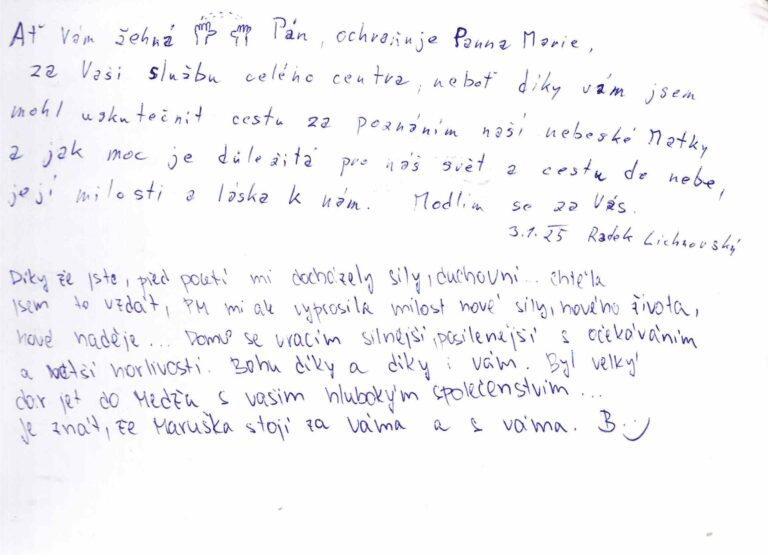 Ať Vám žehná Pán, ochraňuje Panna Marie,
za Vaši službu celého centra, neboť díky vám jsem
mohl uskutečnit cestu za poznáním naší nebeské Matky
a jak moc je důležitá pro náš svět a cestu do nebe,
její milosti a láska k nám. Modlím se za Vás.
3.1.25 Radek Lichnovský
Díky že jste, před poutí mi docházely síly, duchovní... chtěla
jsem to vzdát, PM mi ale vyprosila milost nové síly, nového života,
nové naděje... Domů se vracím silnější, posilenější s očekáváním
a větší horlivostí. Bohu díky a díky i vám. Byl velký
dar jet do Medžu s vašim hlubokým společenstvím...
je znát, že Maruška stojí za váma a s váma. B :)